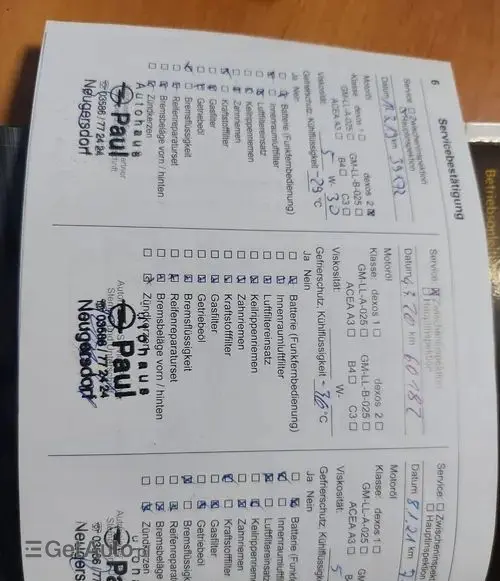 6
Servicebestätigung
Service: ☐ Zwischeninspektion
☒ Hauptinspektion
Datum
km 39172
Motoröl
Klasse: dexos 1 ☐ dexos 2 ☒
GM-LL-A-025 ☐ GM-LL-B-025 ☐
ACEA A3 ☐ B4 ☐ C3 ☐
Viskosität: 5 W- 30
Gefrierschutz, Kühlflüssigkeit -29 °C
Ja Nein
Batterie (Funkfernbedienung)
Innenraumluftfilter
Luftfiltereinsatz
Keilrippenriemen
Zahnriemen
Kraftstofffilter
Gasfilter
Getriebeöl
Bremsflüssigkeit
Reifenreparaturset
Bremsbeläge vorn / hinten
Zündkerzen
Autohaus
Paul
☎ 03586 / 77 24 24
Neugersdorf
Service: ☒ Zwischeninspektion
☐ Hauptinspektion
Datum
km 60182
Motoröl
Klasse: dexos 1 ☐ dexos 2 ☐
GM-LL-A-025 ☐ GM-LL-B-025 ☐
ACEA A3 ☐ B4 ☐ C3 ☐
Viskosität: W-
Gefrierschutz, Kühlflüssigkeit -36 °C
Ja Nein
Batterie (Funkfernbedienung)
Innenraumluftfilter
Luftfiltereinsatz
Keilrippenriemen
Zahnriemen
Kraftstofffilter
Gasfilter
Getriebeöl
Bremsflüssigkeit
Reifenreparaturset
Bremsbeläge vorn / hinten
Zündkerzen
Autohaus
Paul
☎ 03586 / 77 24 24
Neugersdorf
Service: ☐ Zwischeninspe
☐ Hauptinspektion
Datum 8/21 km
Motoröl
Klasse: dexos 1 ☐
GM-LL-A-025 ☐
ACEA A3 ☐
Viskosität: 5
Gefrierschutz, Kühlflüs
Ja Nein
Batterie (Fun
Innenraumluf
Luftfiltereinsatz
Keilrippenriemen
Zahnriemen
Kraftstofffilter
Gasfilter
Getriebeöl
Bremsflüssigkeit
Reifenreparatu
Bremsbeläge
Zündkerzen
Paul
☎ 03586 / 77
Neugers
Betriebsan